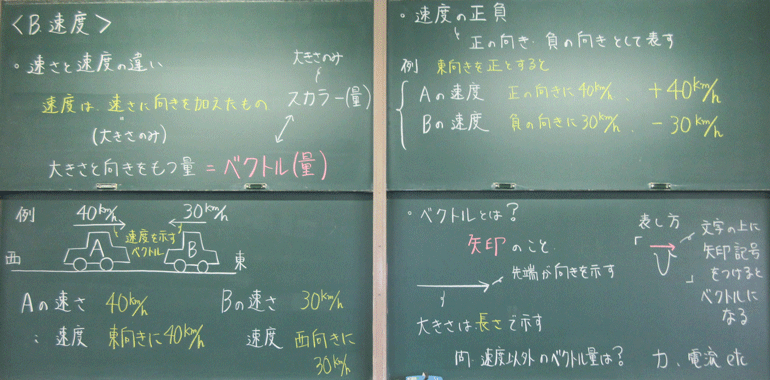 〈B.速度〉
・速さと速度の違い
大きさのみ
速度は、速さに向きを加えたもの
スカラー(量)
(大きさのみ)
大きさと向きをもつ量 = ベクトル(量)
例
40km/h
30km/h
速度を示す
ベクトル
A
B
西
東
Aの速さ 40km/h
Bの速さ 30km/h
〃 速度 東向きに40km/h
速度 西向きに
30km/h
・速度の正負
正の向き・負の向きとして表す
例 東向きを正とすると
Aの速度 正の向きに40km/h、 +40km/h
Bの速度 負の向きに30km/h、 -30km/h
・ベクトルとは?
矢印のこと
先端が向きを示す
大きさは長さで示す
表し方
「V」
文字の上に
矢印記号
をつけると
ベクトルに
なる
問.速度以外のベクトル量は? 力、電流 etc